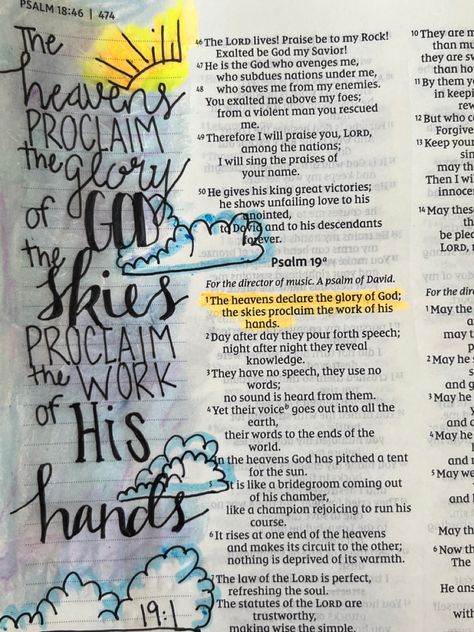 PSALM 18:46 | 474
The
heavens
PROCLAIM
the glory
of GOD
the
skies
PROCLAIM
the WORK
of His
hands
19:1
46 The LORD lives! Praise be to my Rock!
Exalted be God my Savior!
47 He is the God who avenges me,
who subdues nations under me,
48 who saves me from my enemies.
You exalted me above my foes;
from a violent man you rescued
me.
49 Therefore I will praise you, LORD,
among the nations;
I will sing the praises of
your name.
50 He gives his king great victories;
he shows unfailing love to his
anointed,
to David and to his descendants
forever.
Psalm 19a
For the director of music. A psalm of David.
1 The heavens declare the glory of God;
the skies proclaim the work of his
hands.
2 Day after day they pour forth speech;
night after night they reveal
knowledge.
3 They have no speech, they use no
words;
no sound is heard from them.
4 Yet their voice b goes out into all the
earth,
their words to the ends of the
world.
In the heavens God has pitched a tent
for the sun.
It is like a bridegroom coming out
of his chamber,
like a champion rejoicing to run his
course.
6 It rises at one end of the heavens
and makes its circuit to the other;
nothing is deprived of its warmth.
7 The law of the LORD is perfect,
refreshing the soul.
The statutes of the LORD are
trustworthy,
making wise the simple.
10 They are m
than mu
they are sw
than
11 By them y
in keepi
rew
12 But who c
Forgive
13 Keep your
sin
may the
Then I wi
innoce
14 May these
of th
be plea
LORD, m
For the dire
1 May the
m
may
2 May he
se
and
3 May he
and
4 May he
a
and
5 May we
a
and
May th
6 Now th
The
He ans
with